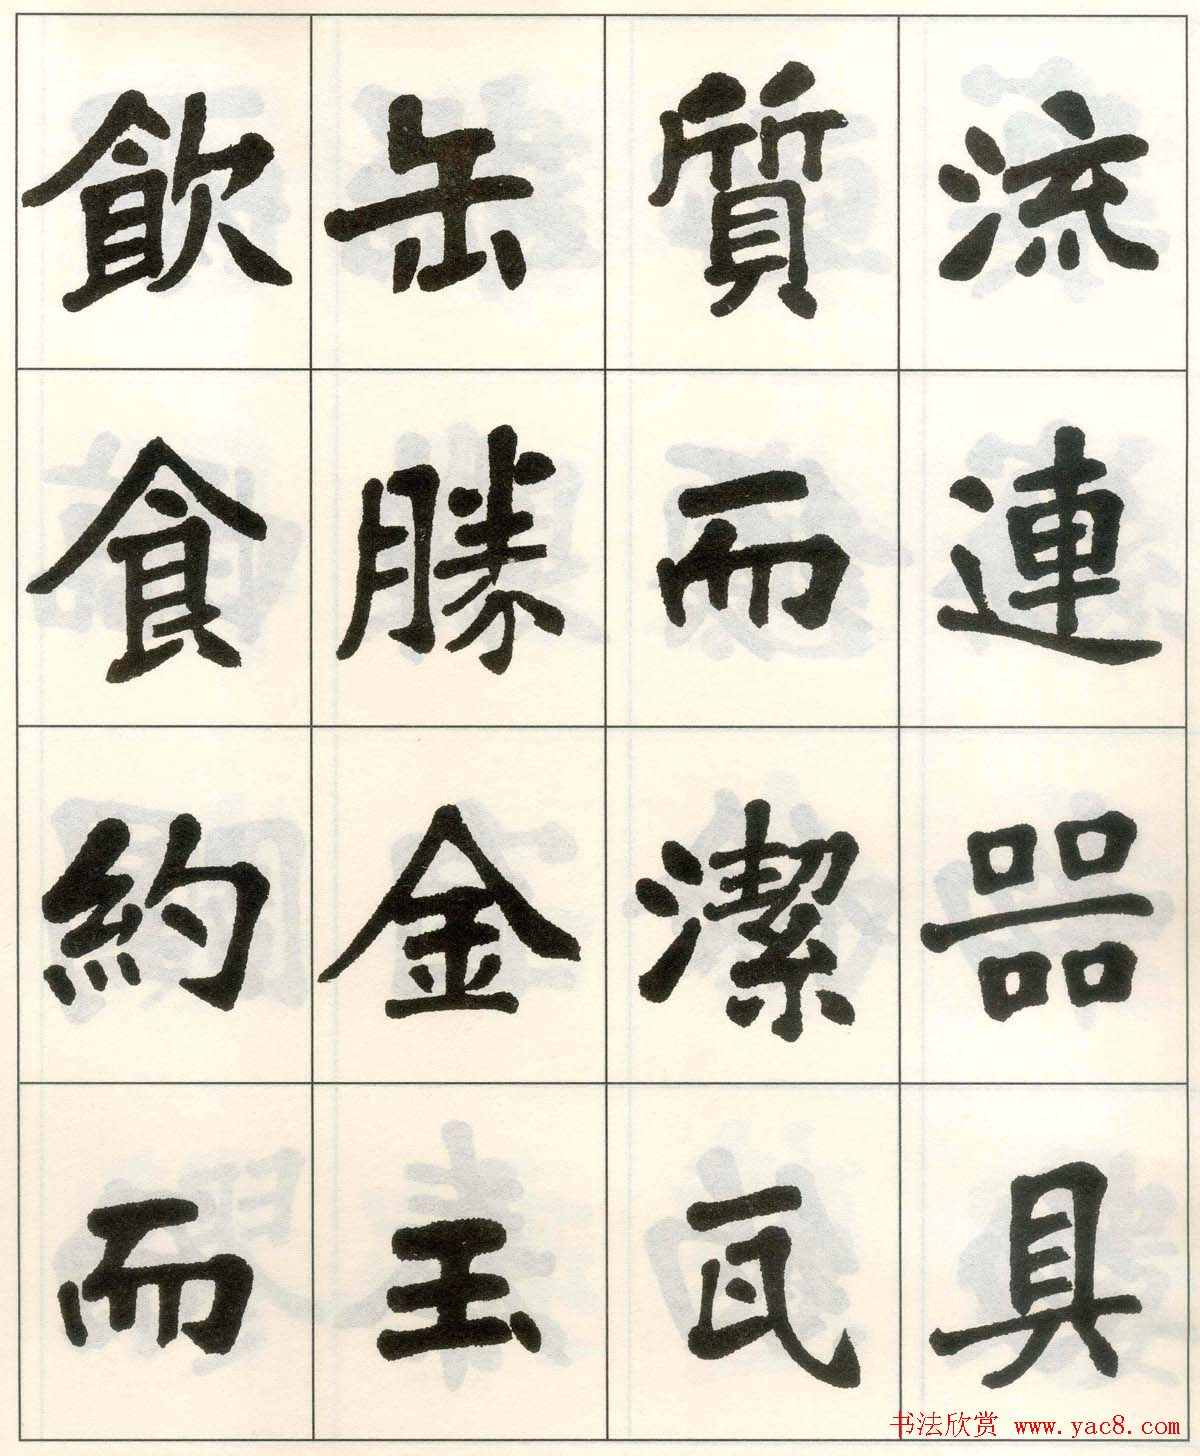 流連器具
質而潔瓦
缶勝金玉
飲食約而
书法欣赏 www.yac8.com